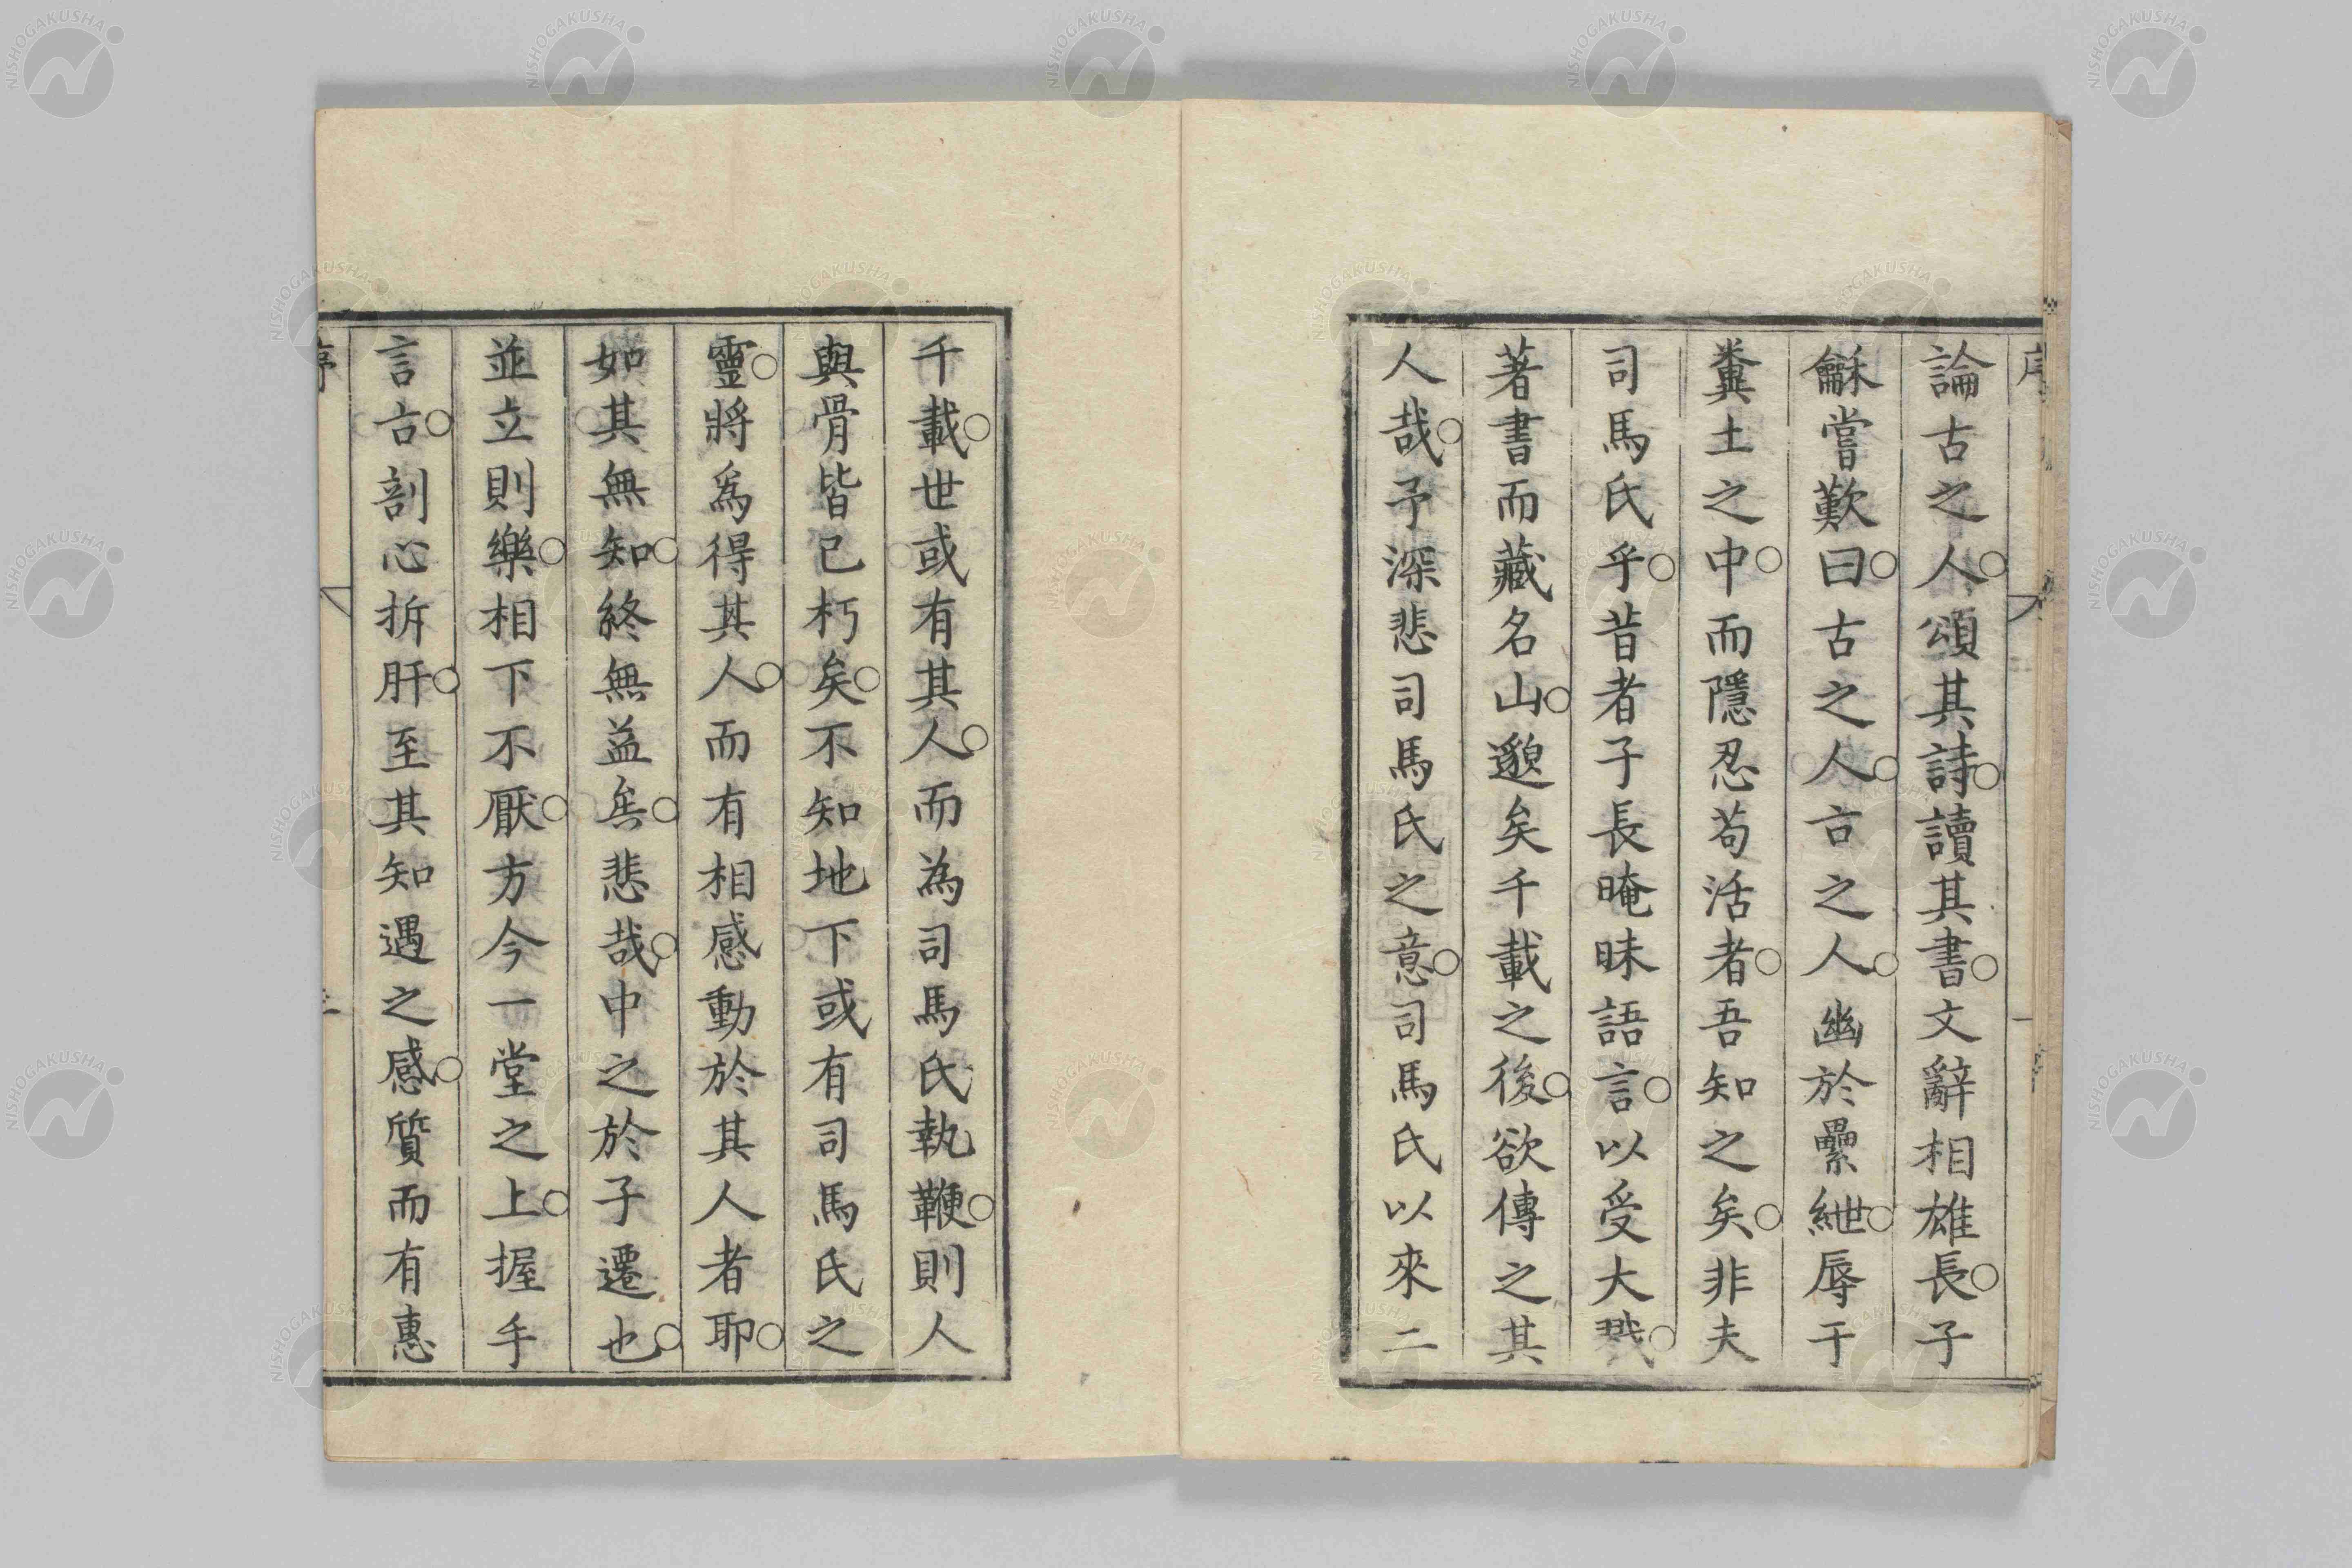 論古之人○頌其詩○讀其書○文辭相雄長○子
龢嘗歎曰○古之人○古之人○幽於纍紲○辱于
糞土之中○而隱忍苟活者○吾知之矣○非夫
司馬氏乎○昔者子長晻昧語言○以受大戮○
著書而藏名山○邈矣千載之後○欲傳之其
人哉○予深悲司馬氏之意○司馬氏以來二
千載○世或有其人○而為司馬氏執鞭○則人
與骨皆已朽矣○不知地下或有司馬氏之
靈○將爲得其人○而有相感動於其人者耶○
如其無知○終無益矣○悲哉○中之於子遷也○
並立則樂○相下不厭○方今一堂之上○握手
言古○剖心拆肝○至其知遇之感○質而有惠
序
NISHOGAKUSHA